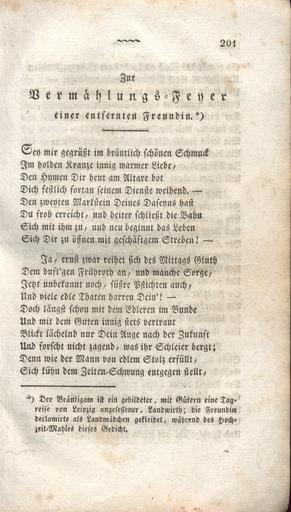 201
Zur
Vermählungs-Feyer
einer entfernten Freundin.*)
Sey mir gegrüßt im bräutlich schönen Schmuck
Im holden Kranze innig warmer Liebe,
Den Hymen Dir heut am Altare bot
Dich festlich fortan seinem Dienste weihend. —
Den zweyten Markstein Deines Daseyns hast
Du froh erreicht, und heiter schließt die Bahn
Sich mit ihm zu, und neu beginnt das Leben
Sich Dir zu öffnen mit geschäftgem Streben! —
Ja, ernst zwar reihet sich des Mittags Gluth
Dem duft'gen Frühroth an, und manche Sorge,
Jetzt unbekannt noch, süßre Pflichten auch,
Und viele edle Thaten harren Dein'! —
Doch längst schon mit dem Edleren im Bunde
Und mit dem Guten innig stets vertraut
Blickt lächelnd nur Dein Auge nach der Zukunft
Und forscht nicht zagend, was ihr Schleier bergt;
Denn wie der Mann von edlem Stolz erfüllt,
Sich kühn dem Zeiten-Schwung entgegen stellt,
*) Der Bräutigam ist ein gebildeter, mit Gütern eine Tag-
reise von Leipzig angesessener, Landwirth; die Freundin
declamirte als Landmädchen gekleidet, während des Hoch-
zeit-Mahles dieses Gedicht.